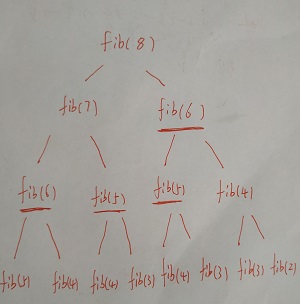 fib(8)
fib(7) fib(6)
fib(6) fib(5) fib(5) fib(4)
fib(5) fib(4) fib(4) fib(3) fib(4) fib(3) fib(3) fib(2)